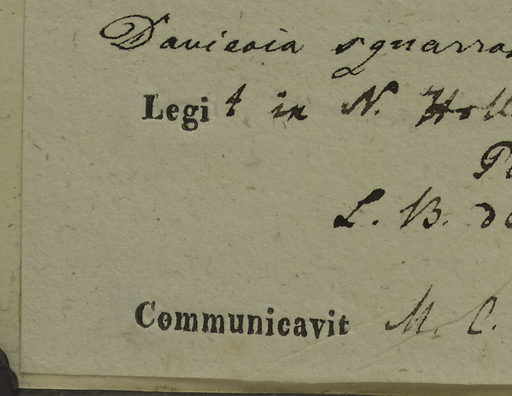 Daviesia squarros
Legit in N. Holl
Pl
L. B. de
Communicavit M. C.